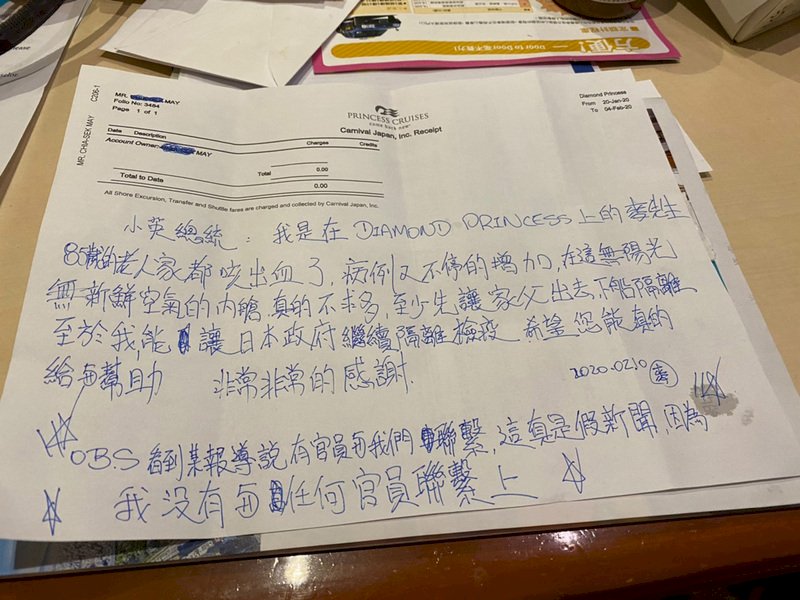 方便! — Door to Door毫不費力
MR. MAY
Folio No: 3484
Page 1 of 1
C206-1
MR. CHIA-SEK MAY
PRINCESS CRUISES
come back new
Carnival Japan, Inc. Receipt
Diamond Princess
From 20-Jan-20
To 04-Feb-20
Date Description Charges Credits
Account Owner: MAY
Total 0.00
Total to Date 0.00
All Shore Excursion, Transfer and Shuttle fares are charged and collected by Carnival Japan, Inc.
小英總統：我是在 DIAMOND PRINCESS 上的先生
85歲的老人家都咳出血了, 病例又不停的增加, 在這無陽光
無新鮮空氣的內艙, 真的不求多, 至少先讓家父出去, 下船隔離
至於我, 能讓日本政府繼續隔離檢疫 希望您能真的
給与幫助 非常非常的感謝.
2020.02.10
OBS 看到某報導說有官員与我們聯繫, 這真是假新聞, 因為
我沒有与任何官員聯繫上